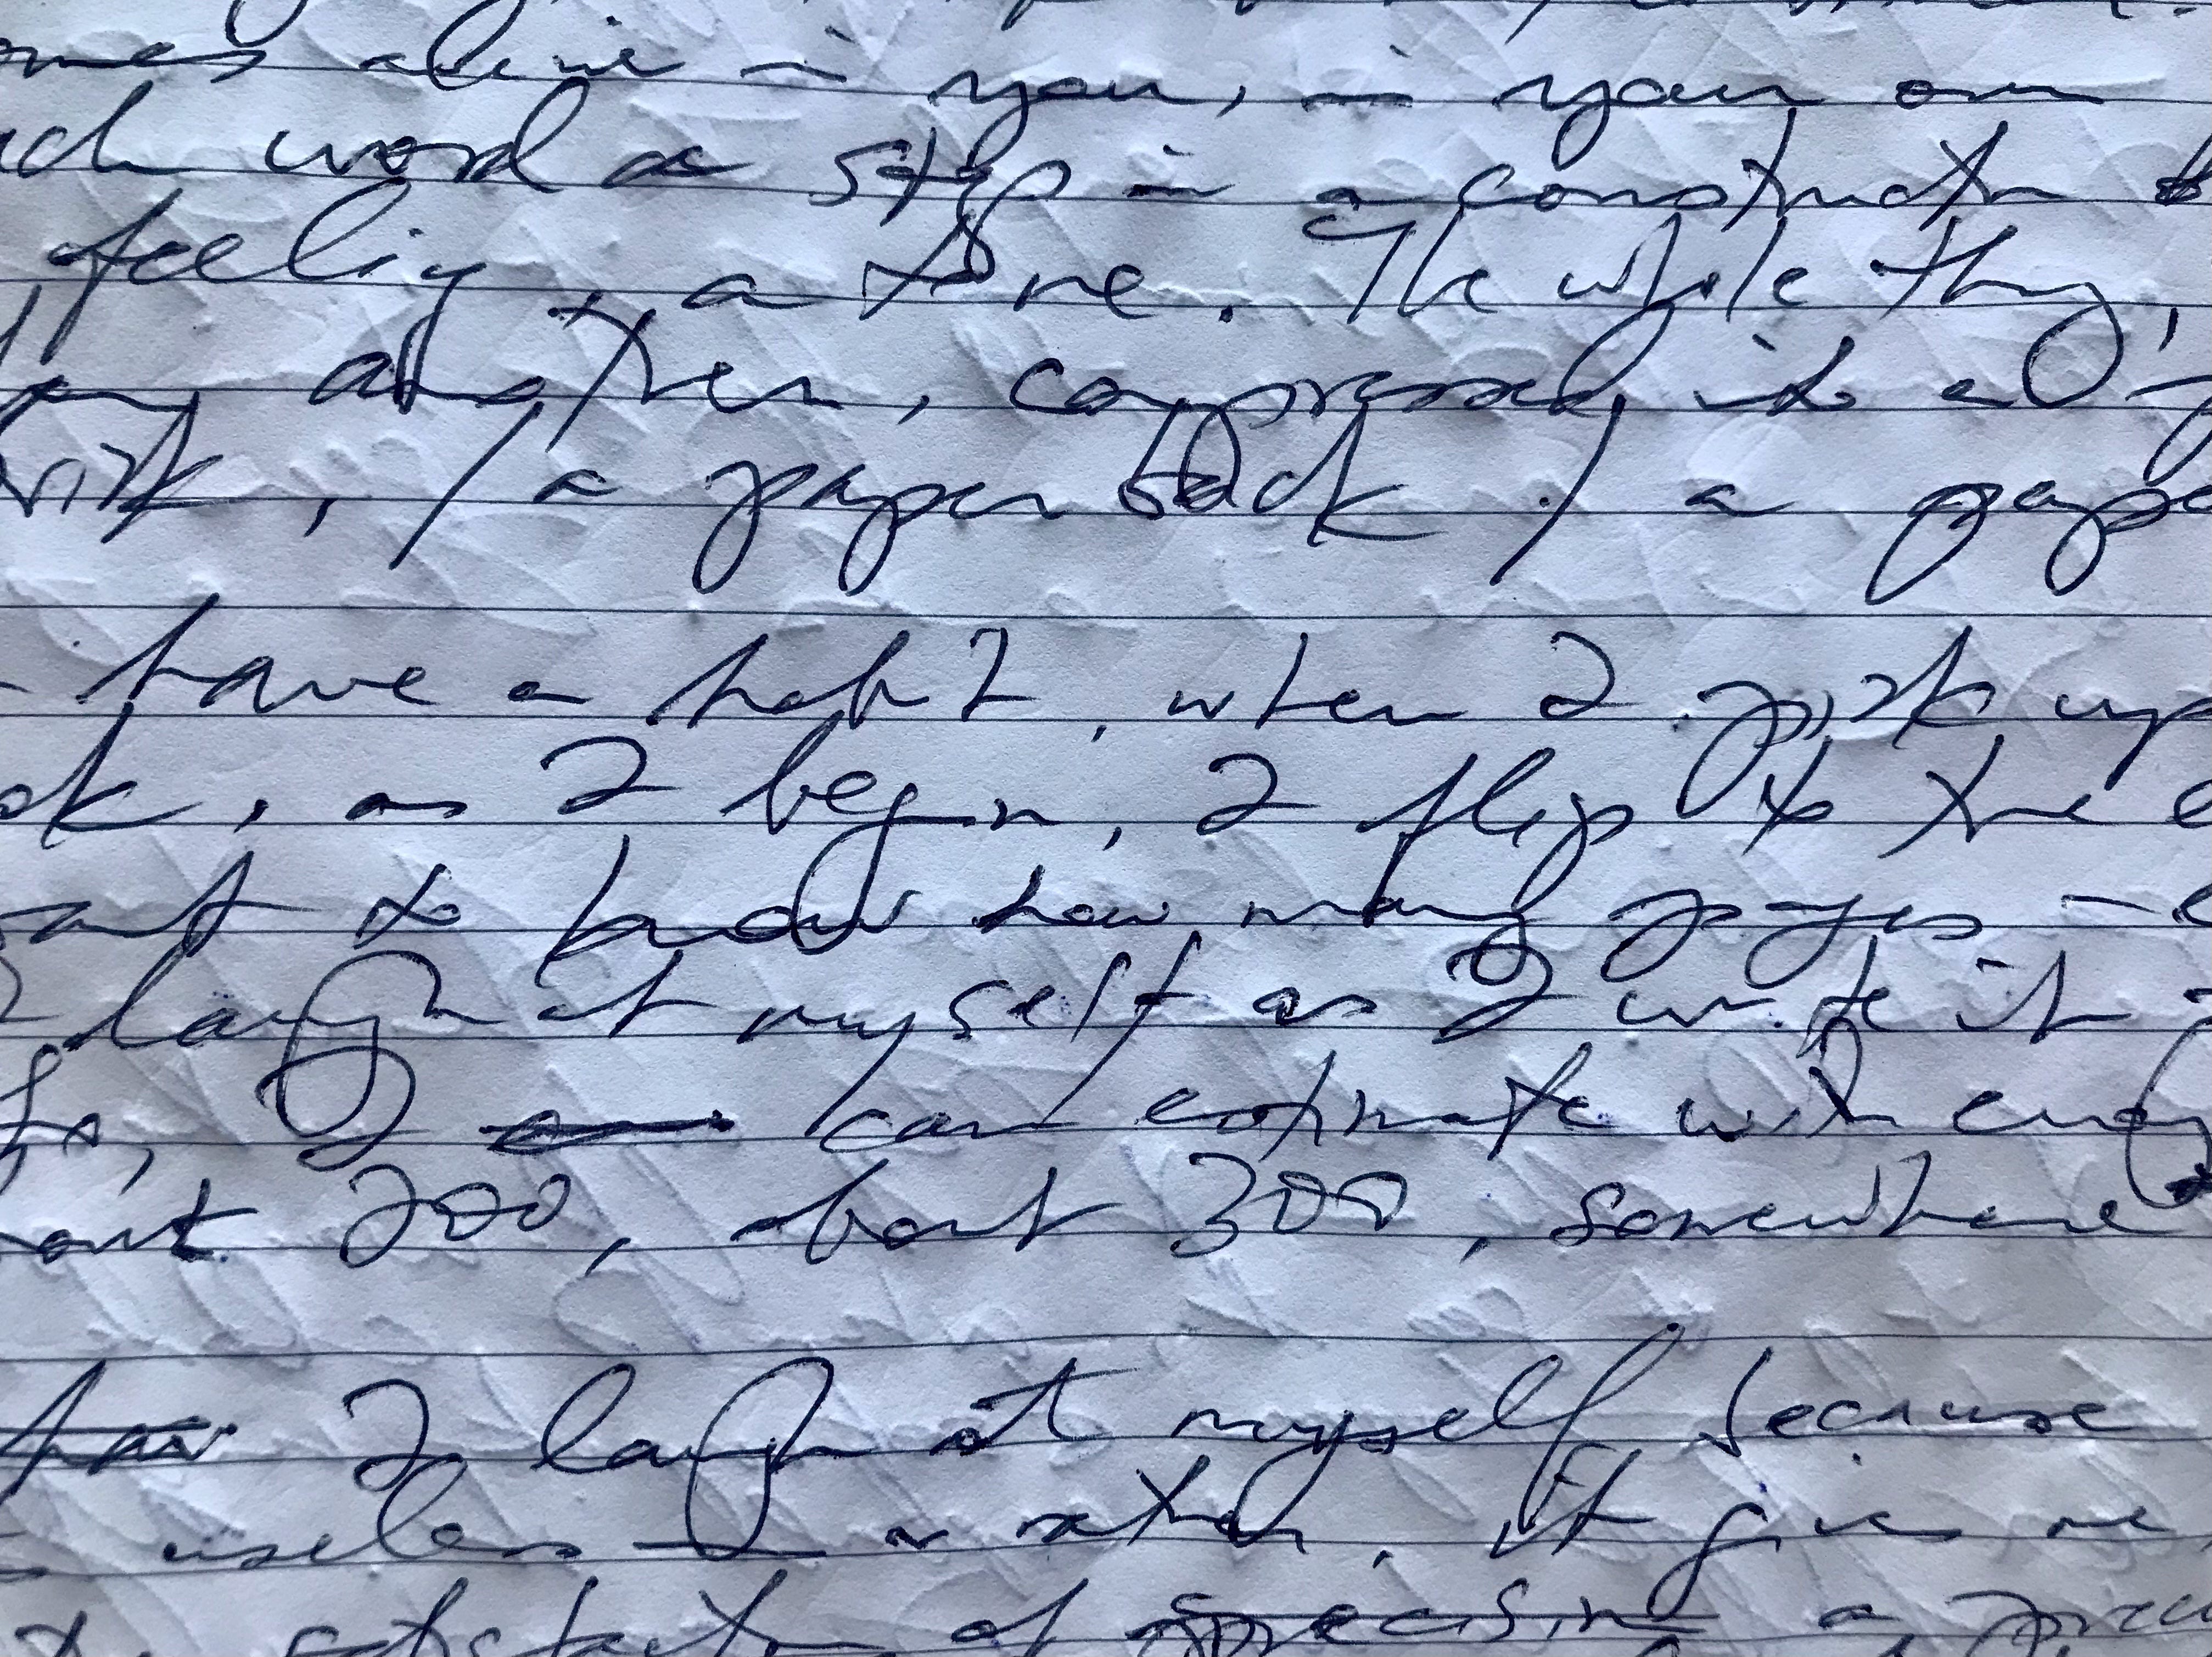 alive in you, in your own
word as step in a construction
feeling, a tone. The whole thing,
another, compressed into a
, / a paperback / a
have a habit, when I pick up
, as I begin, I flip to the
to know how many pages
laugh at myself as I write it
, I can estimate with
200, about 300, somewhere
I laugh at myself because
useless — or rather. It gives me
satisfaction of precision a